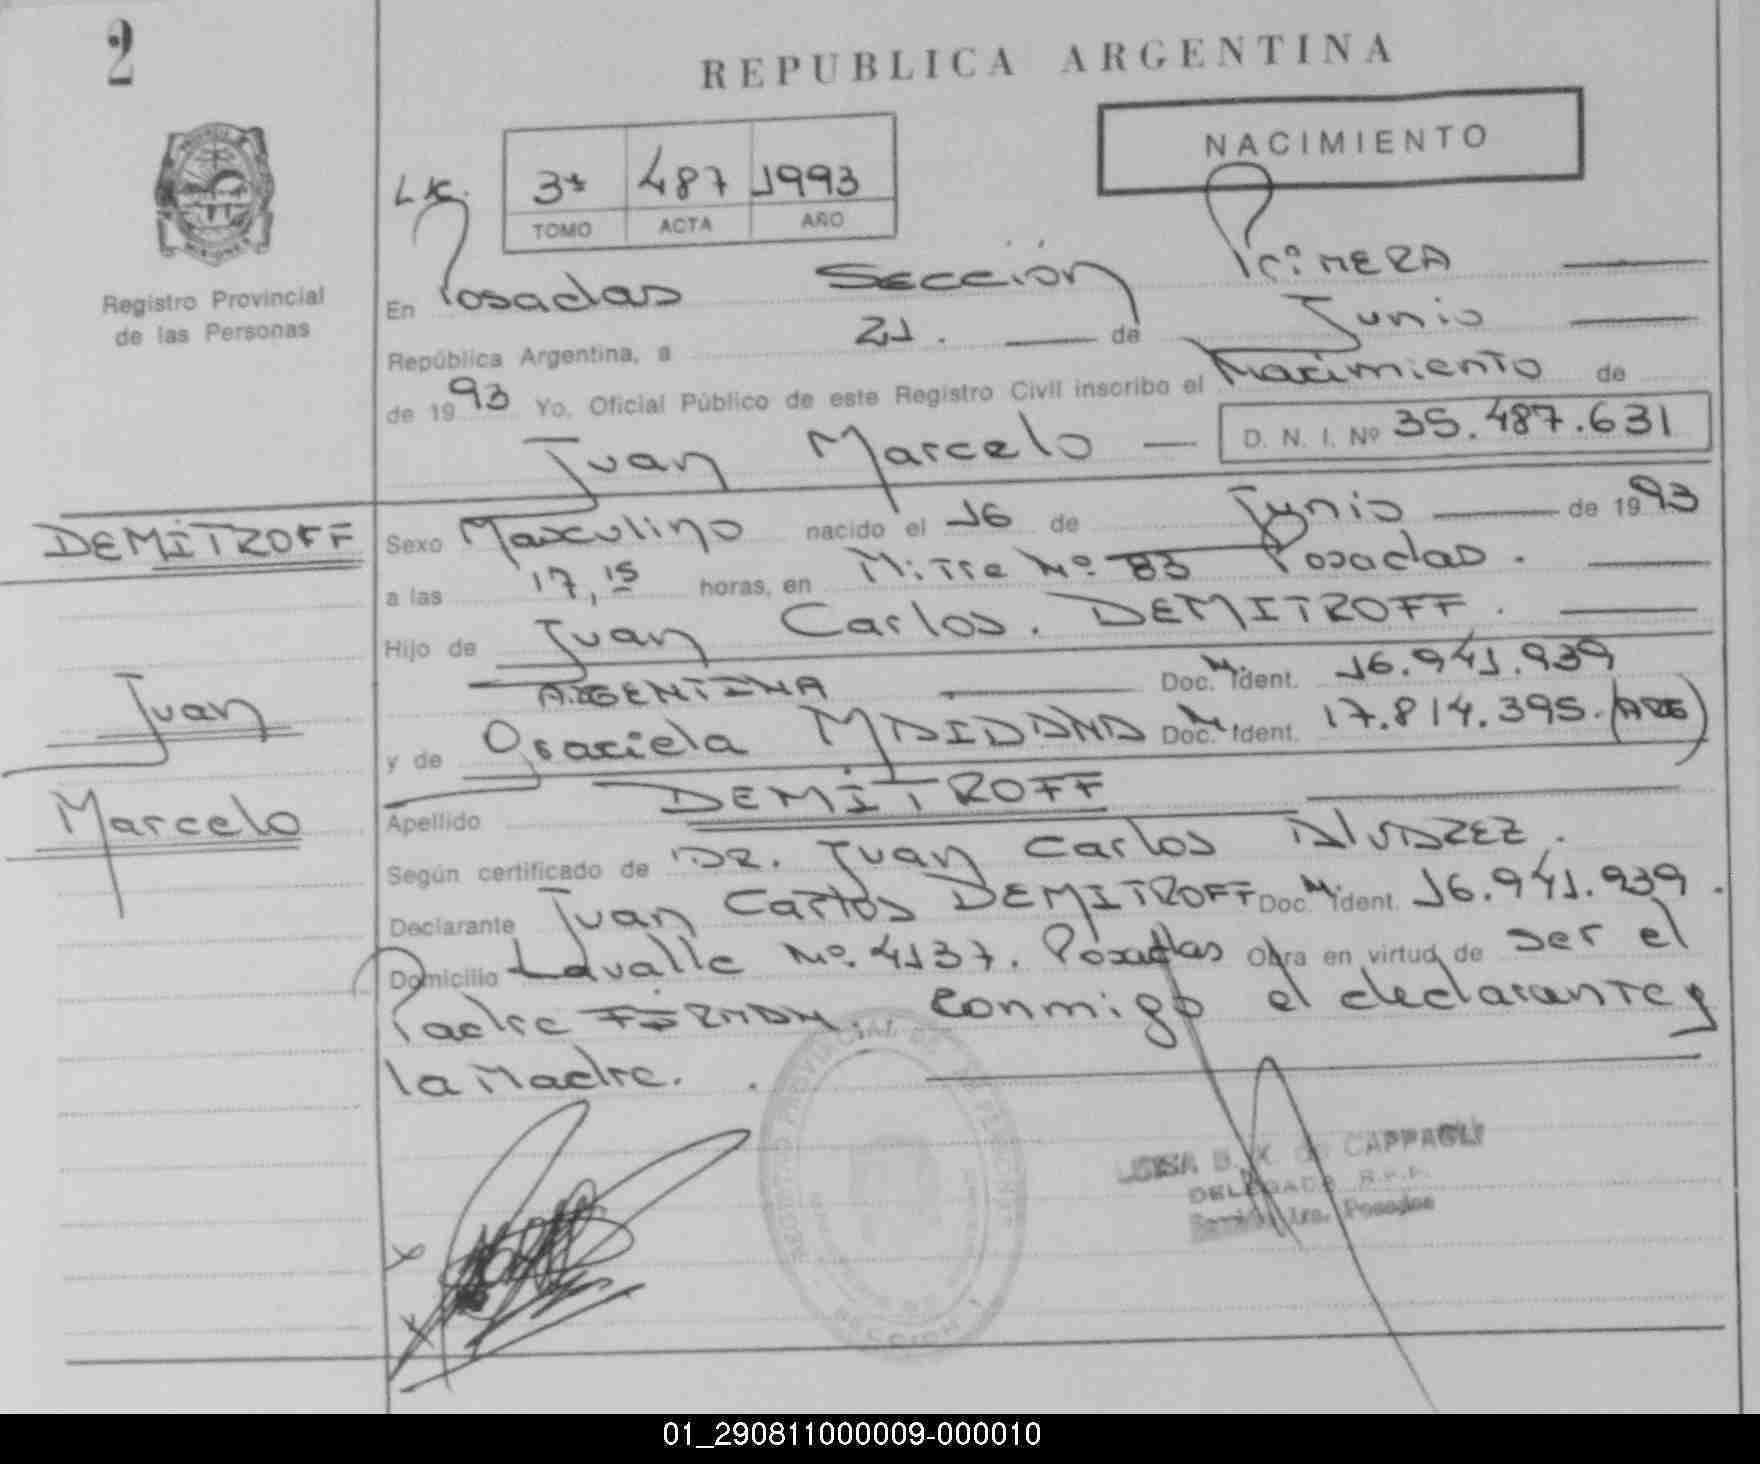 2
REPUBLICA ARGENTINA
NACIMIENTO
3ª 487 1993
TOMO ACTA AÑO
Registro Provincial
de las Personas
En Posadas Sección Primera
República Argentina, a 21. de Junio
de 1993 Yo, Oficial Público de este Registro Civil inscribo el Nacimiento de
Juan Marcelo D. N. I. Nº 35.487.631
DEMITROFF
Juan
Marcelo
Sexo Masculino nacido el 16 de Junio de 1993
a las 17,15 horas, en Mitre Nº 83 Posadas.
Hijo de Juan Carlos. DEMITROFF.
ARGENTINA Doc. M. Ident. 16.941.939
y de Graciela MAIDANA Doc. M. Ident. 17.814.395. (ARG)
Apellido DEMITROFF
Según certificado de DR. Juan Carlos ALVAREZ.
Declarante Juan Carlos DEMITROFF Doc. M. Ident. 16.941.939.
Domicilio Lavalle Nº 4137. Posadas Obra en virtud de ser el
Padre FIRMAN. Conmigo el declarante y
la Madre.
REGISTRO PROVINCIAL DE LAS PERSONAS
SECCION 1
B. K. de CAPPAGLI
DELEGADA R.P.P.
Sección 1ra. Posadas
01_290811000009-000010